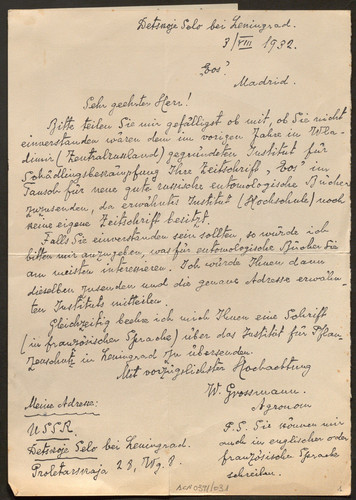 Detskoje Selo bei Leningrad.
3/VIII 1932.
"Eos"
Madrid.
Sehr geehrter Herr!
Bitte teilen Sie mir gefälligst ob mit, ob Sie nicht
einverstanden wären dem im vorigen Jahre in Wla-
dimir (Zentralrussland) gegründeten Institut für
Schädlingsbekämpfung Ihre Zeitschrift "Eos" im
Tausch für neue gute russische entomologische Bücher
zuzusenden, da erwähntes Institut (Hochschule) noch
keine eigene Zeitschrift besitzt.
Falls Sie einverstanden sein sollten, so würde ich
bitten mir anzugeben, was für entomologische Bücher Sie
am meisten interessieren. Ich würde Ihnen dann
dieselben zusenden und die genaue Adresse erwähn-
ten Instituts mitteilen.
Gleichzeitig beehre ich mich Ihnen eine Schrift
(in französischer Sprache) über das Institut für Pflan-
zenschutz in Leningrad zu übersenden.
Mit vorzüglichster Hochachtung
W. Grossmann.
Agronom
Meine Adresse:
USSR.
Detskoje Selo bei Leningrad.
Proletarskaja 23, Wg. 8.
P.S. Sie können mir
auch in englischer oder
französische Sprache
schreiben.
ACN0371/031